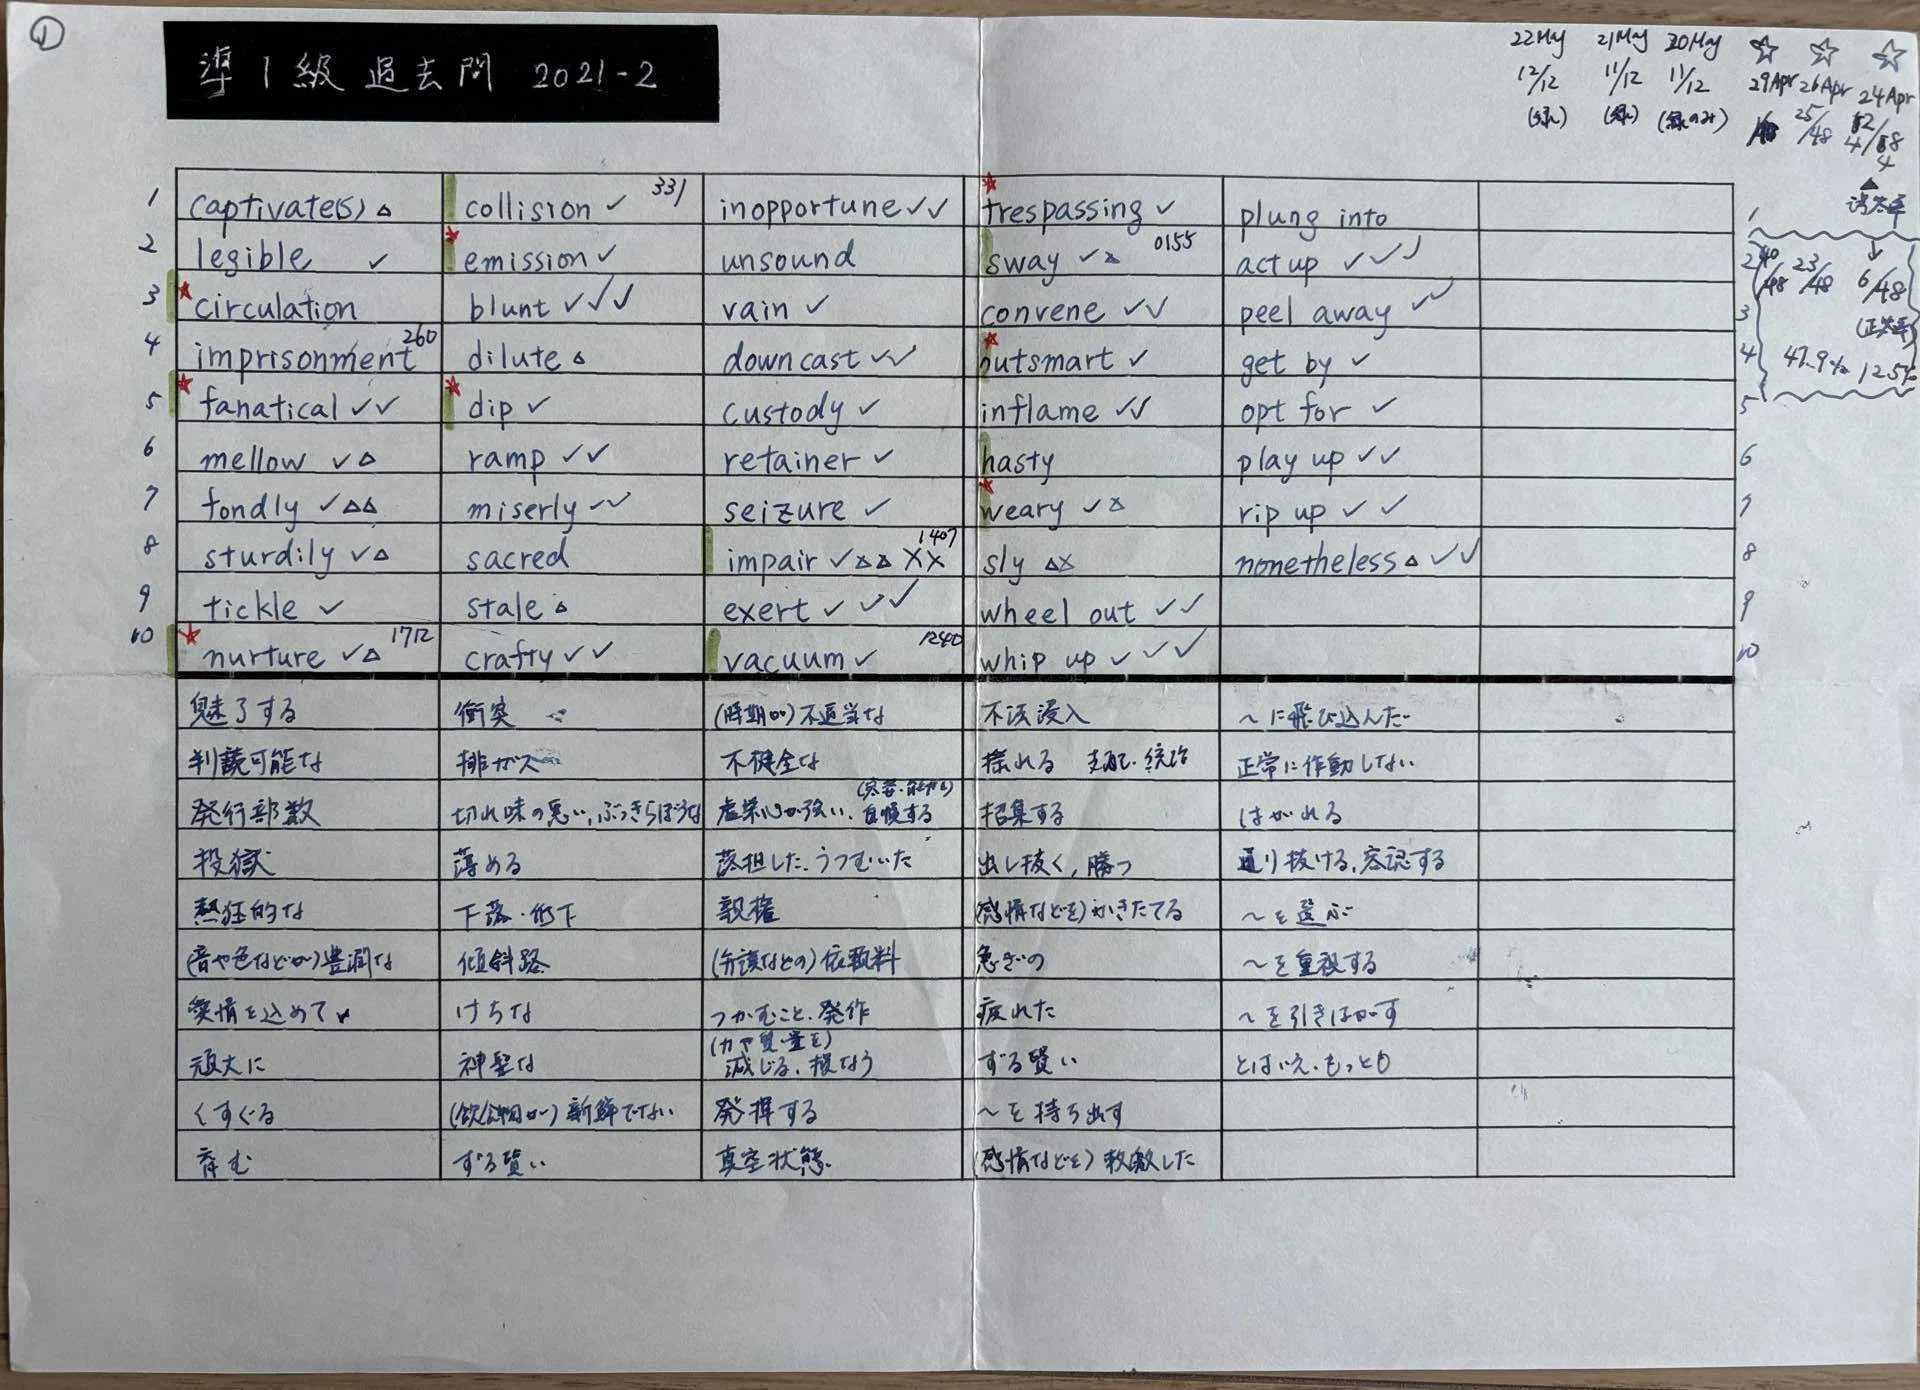 ①
準1級 過去問 2021-2
22May 21May 20May ☆ ☆ ☆
12/12 11/12 11/12 29Apr 26Apr 24Apr
(緑) (緑) (緑のみ) 25/48
誤答率
40/48 23/48 6/48
(正答率)
47.9% 12.5%
1 captivate(s) △ collision ✓ 331 inopportune ✓✓ ★ trespassing ✓ plung into 1
2 legible ✓ ★ emission ✓ unsound sway ✓△ 0155 act up ✓✓✓ 2
3 ★ circulation blunt ✓✓✓ vain ✓ convene ✓✓ peel away ✓✓ 3
4 imprisonment 260 dilute △ downcast ✓✓ ★ outsmart ✓ get by ✓ 4
5 ★ fanatical ✓✓ ★ dip ✓ custody ✓ inflame ✓✓ opt for ✓ 5
6 mellow ✓△ ramp ✓✓ retainer ✓ hasty play up ✓✓ 6
7 fondly ✓△△ miserly ✓✓ seizure ✓ ★ weary ✓△ rip up ✓✓ 7
8 sturdily ✓△ sacred impair ✓△△×× 1407 sly △× nonetheless △✓✓ 8
9 tickle ✓ stale △ exert ✓✓✓ wheel out ✓✓ 9
10 ★ nurture ✓△ 1712 crafty ✓✓ vacuum ✓ 1240 whip up ✓✓✓ 10
魅了する 衝突 (時期が)不適当な 不法浸入 〜に飛び込んだ
判読可能な 排ガス 不健全な 揺れる 支配・統治 正常に作動しない
発行部数 切れ味の悪い,ぶっきらぼうな 虚栄心が強い、自慢する 招集する はがれる
投獄 薄める 落担した、うつむいた 出し抜く,勝つ 通り抜ける,容認する
熱狂的な 下落・低下 親権 (感情などを)かきたてる 〜を選ぶ
(音や色などが)豊潤な 傾斜路 (弁護などの)依頼料 急ぎの 〜を重視する
愛情を込めて けちな つかむこと、発作 疲れた 〜を引きはがす
頑丈に 神聖な (力や質・量を)減じる、損なう ずる賢い とはいえ、もっとも
くすぐる (飲食物が)新鮮でない 発揮する 〜を持ち出す
育む ずる賢い 真空状態 (感情などを)刺激した